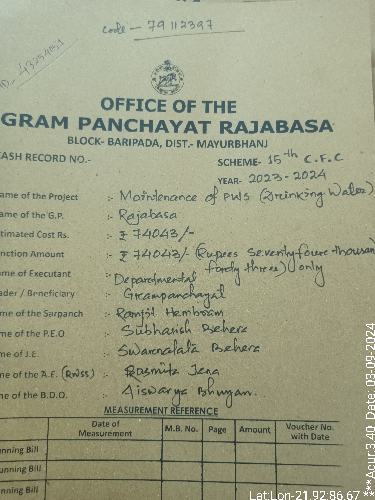 code - 79112397
ID. 43254151
OFFICE OF THE
GRAM PANCHAYAT RAJABASA
BLOCK- BARIPADA, DIST.- MAYURBHANJ
CASH RECORD NO.-
SCHEME- 15th C.F.C
YEAR- 2023-2024
ame of the Project :- Maintenance of PWS (Drinking Water)
ame of the G.P. :- Rajabasa
timated Cost Rs. :- ₹ 74043/-
nction Amount :- ₹ 74043/- (Rupees Seventyfour thousan
fourty three) only
me of Executant :- Departmental
ader / Beneficiary :- Grampanchayat
me of the Sarpanch :- Ramjit Hembram
me of the P.E.O :- Subhasish Behera
me of J.E. :- Swarnalata Behera
me of the A.E. (RWSS) :- Rasmita Jena
me of the B.D.O. :- Aiswarya Bhuyan.
MEASUREMENT REFERENCE
Date of Measurement M.B. No. Page Amount Voucher No. with Date
nning Bill
unning Bill
nning Bill
Lat:Lon-21.92:86.67
***Acur:3.40 Date:03-09-2024